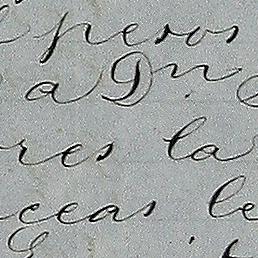 pesos
a Dn
res la
ceas le